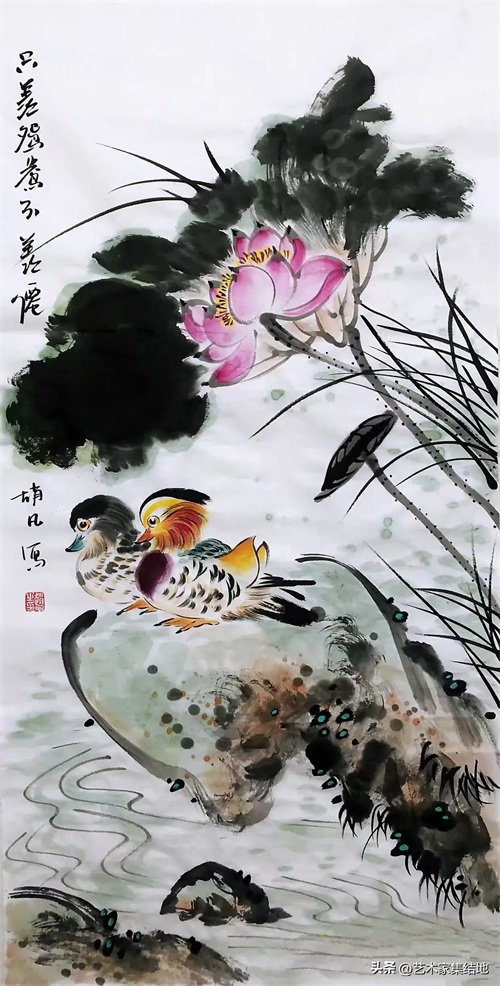 只羡鸳鸯不羡仙
胡凡写
头条 @艺术家集结地